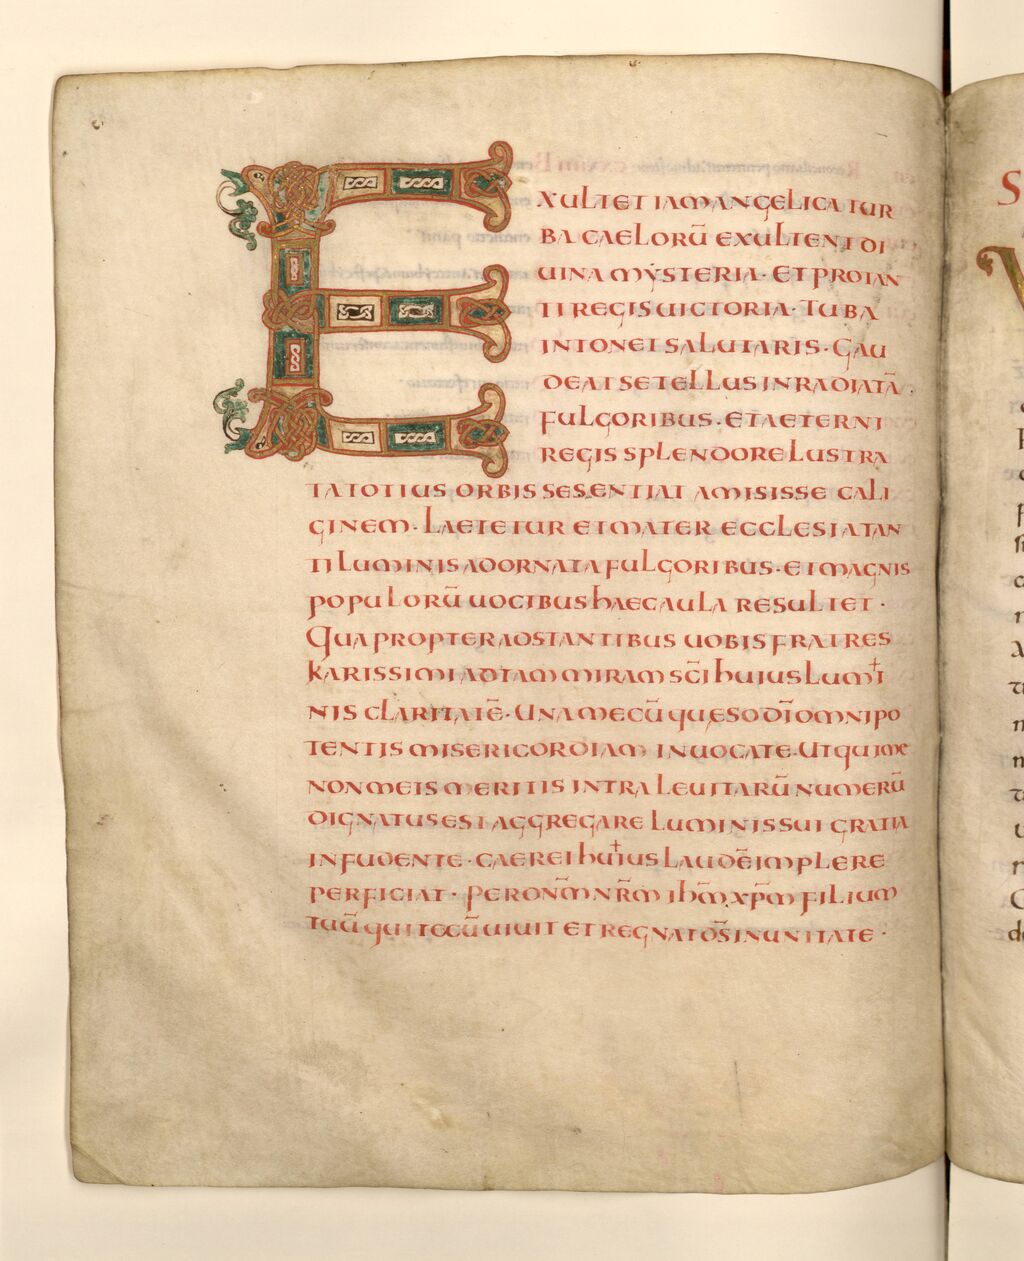 EXULTET IAM ANGELICA TUR
BA CAELORŪ EXULTENT DI
UINA MẎSTERIA· ET PRO TAN
TI REGIS UICTORIA· TUBA
INTONET SALUTARIS· GAU
DEAT SE TELLUS INRADIATĀ
FULGORIBUS· ET AETERNI
REGIS SPLENDORE LUSTRA
TA TOTIUS ORBIS SE SENTIAT AMISISSE CALI
GINEM· LAETETUR ET MATER ECCLESIA TAN
TI LUMINIS ADORNATA FULGORIBUS· ET MAGNIS
POPULORŪ UOCIBUS HAEC AULA RESULTET·
QUAPROPTER ADSTANTIBUS UOBIS FRATRES
KARISSIMI AD TAM MIRAM SC̄I HUIUS LUMI
NIS CLARITATĒ· UNA MECŪ QUESO DM̄ OMNIPO
TENTIS MISERICORDIAM INUOCATE· UT QUI ME
NON MEIS MERITIS INTRA LEUITARŪ NUMERŪ
DIGNATUS EST AGGREGARE LUMINIS SUI GRATIA
INFUDENTE· CAEREI HUIUS LAUDĒ IMPLERE
PERFICIAT· PER DNM̄ NRM̄ IHM̄ XPM̄ FILIUM
TUŪ QUI TECŪ UIUIT ET REGNAT DS̄ IN UNITATE·